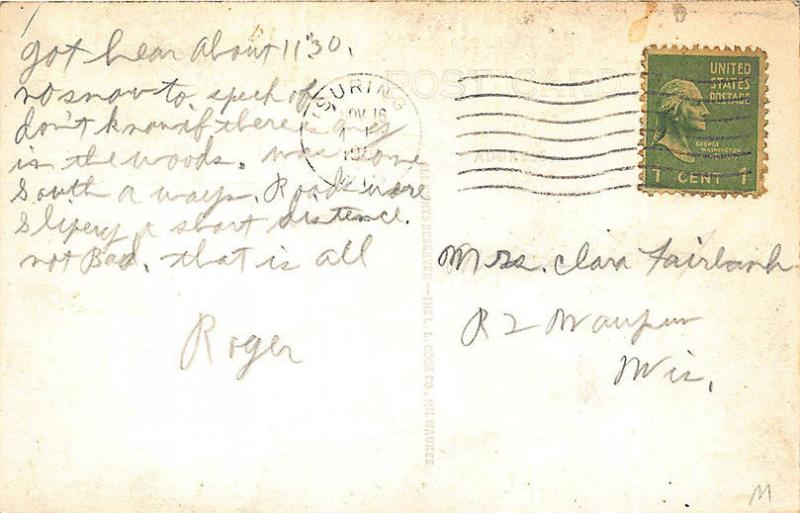 got hear About 11:30.
no snow to speck of
don't know if there is any
in the woods. was some
South a ways. Roads were
Slipery a short distence.
not Bad. that is all
Roger
POST CARD
ADDRESS
SURING
NOV 16
WIS
UNITED
STATES
POSTAGE
GEORGE
WASHINGTON
1 CENT 1
Mrs. Clara Fairbank
R 2 Waupun
Wis.
ALL RIGHTS RESERVED—THE L. L. COOK CO., MILWAUKEE
M